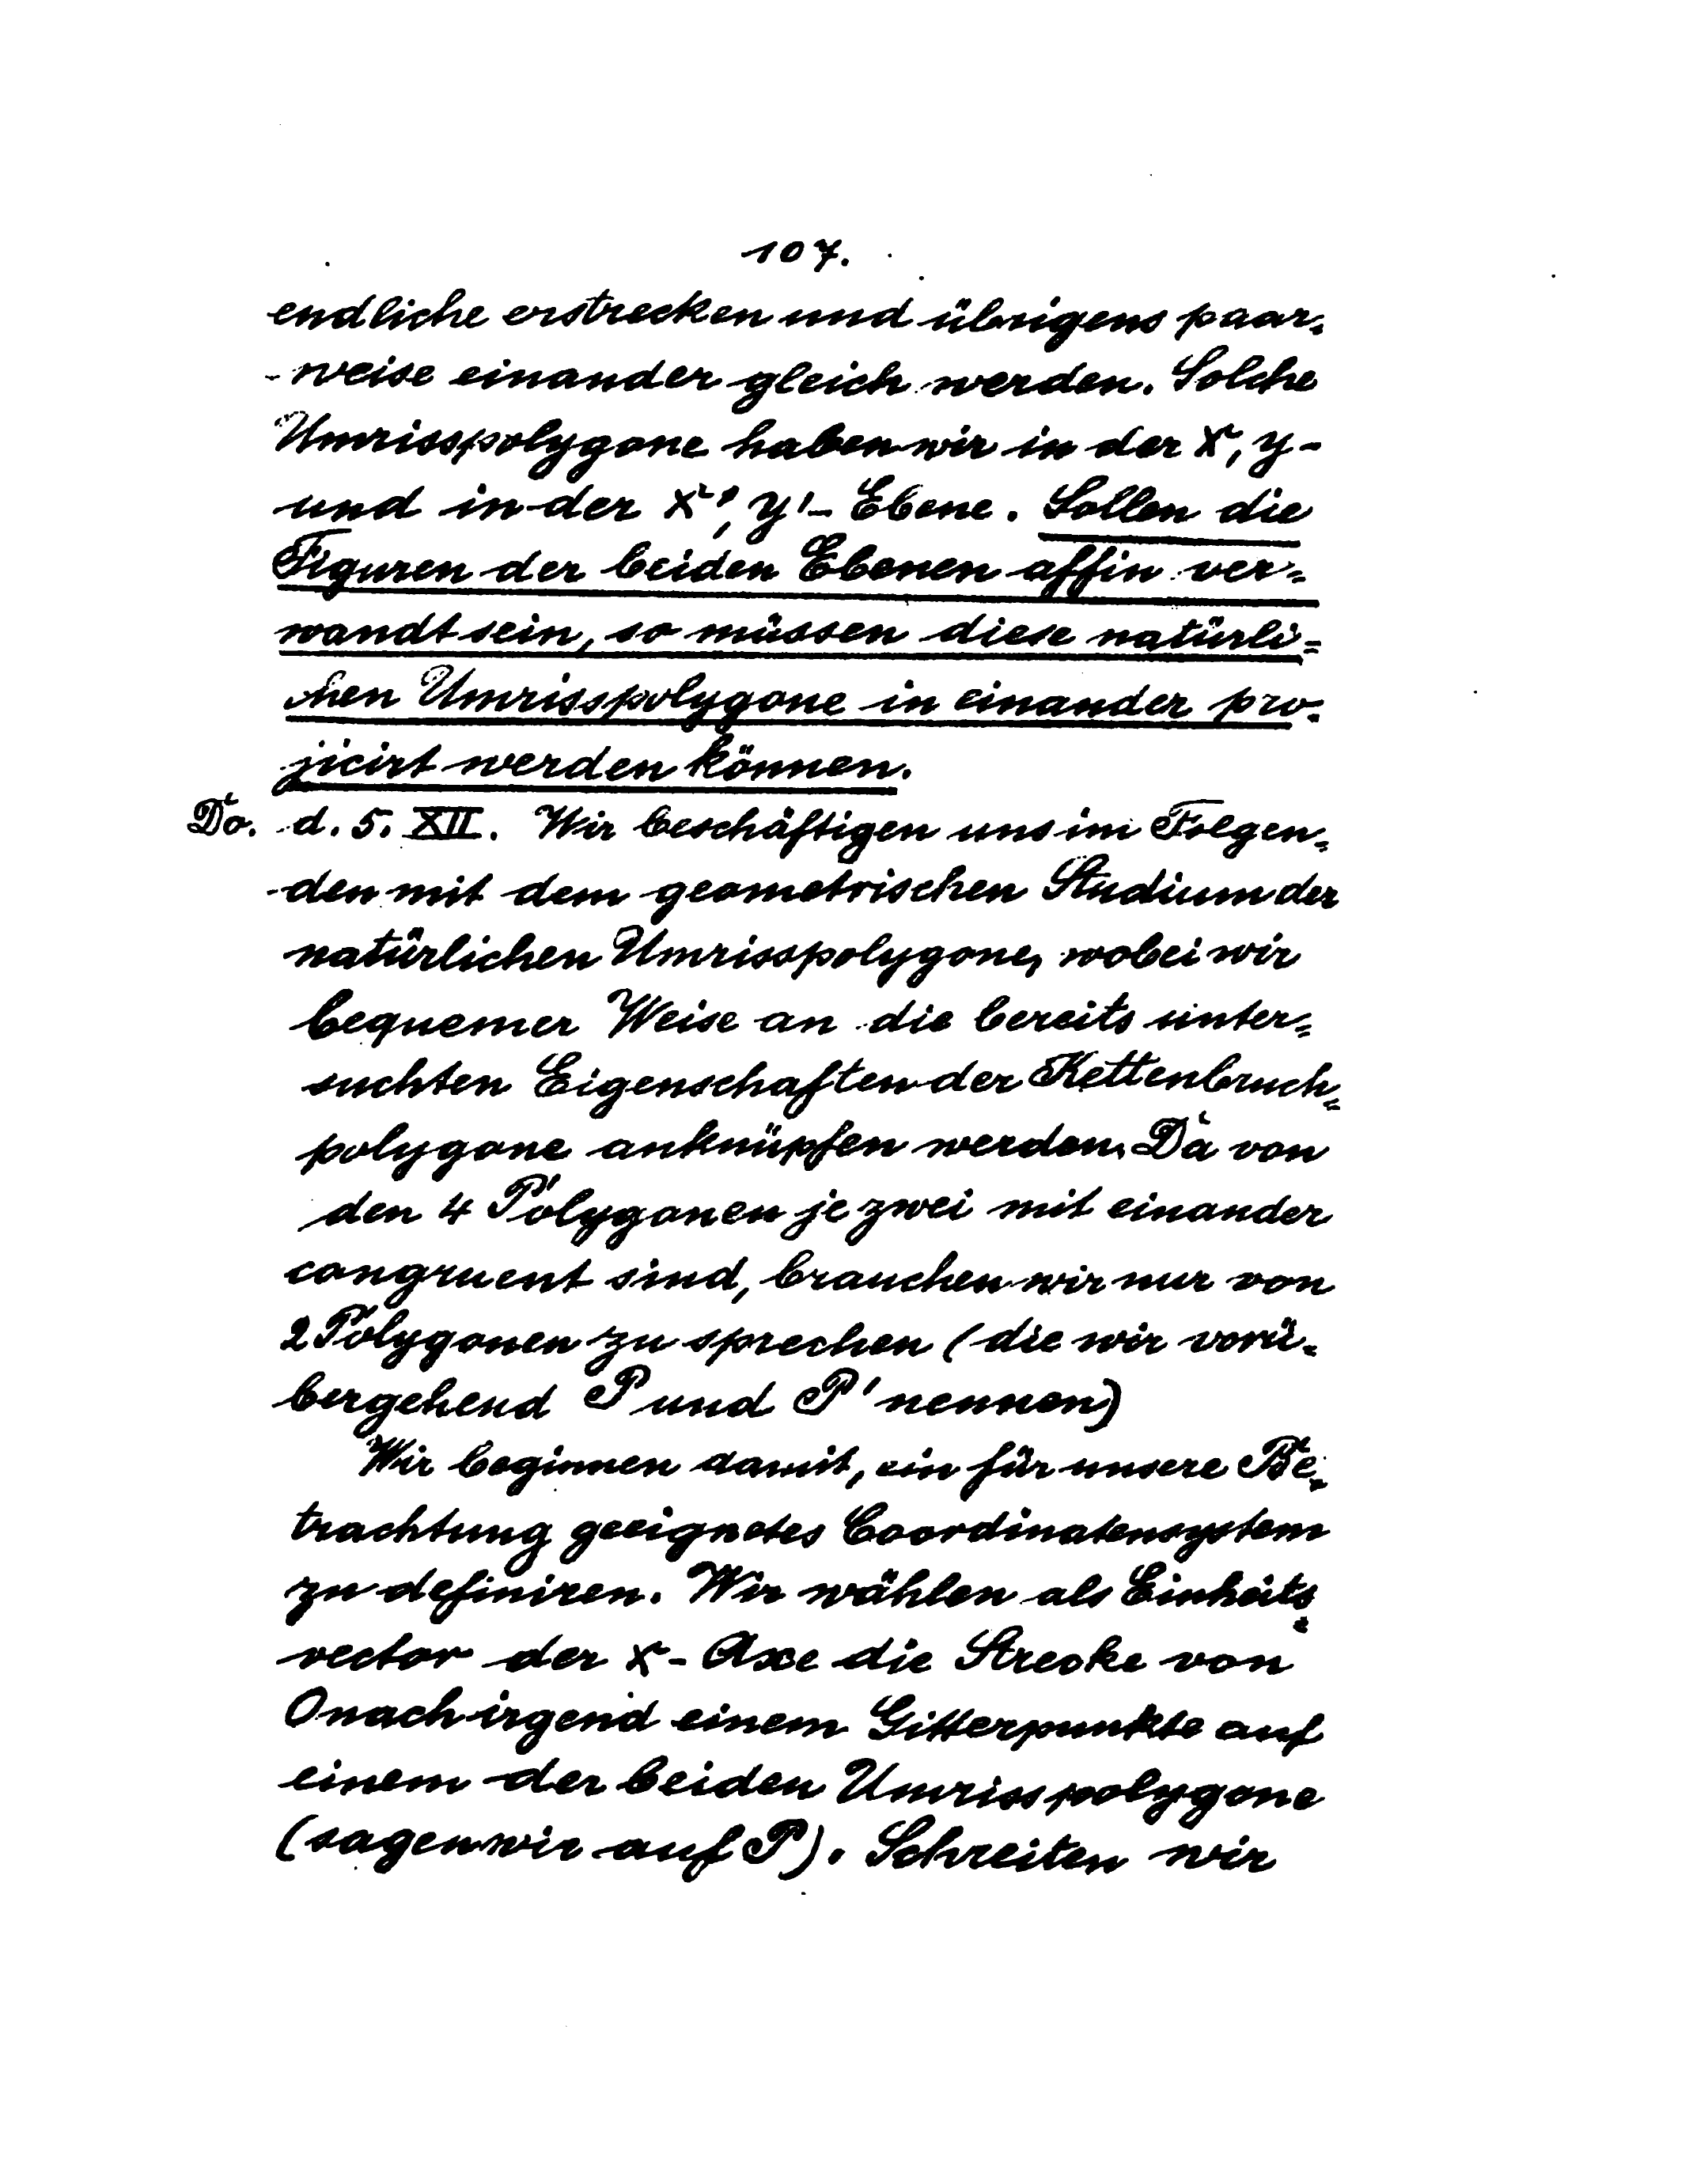 107.
endliche erstrecken und übrigens paar=
weise einander gleich werden. Solche
Umrisspolygone haben wir in der x, y-
und in der x', y'- Ebene. Sollen die
Figuren der beiden Ebenen affin ver=
wandt sein, so müssen diese natürli=
chen Umrisspolygone in einander pro=
jicirt werden können.
Do. d. 5. XII. Wir beschäftigen uns im Folgen=
den mit dem geometrischen Studium der
natürlichen Umrisspolygone, wobei wir
bequemer Weise an die bereits unter=
suchten Eigenschaften der Kettenbruch=
polygone anknüpfen werden. Da von
den 4 Polygonen je zwei mit einander
congruent sind, brauchen wir nur von
2 Polygonen zu sprechen (die wir vorü=
bergehend P und P' nennen)
Wir beginnen damit, ein für unsere Be=
trachtung geeignetes Coordinatensystem
zu definiren. Wir wählen als Einheits=
vector der x- Axe die Strecke von
O nach irgend einem Gitterpunkte auf
einem der beiden Umrisspolygone
(sagen wir auf P). Schreiten wir